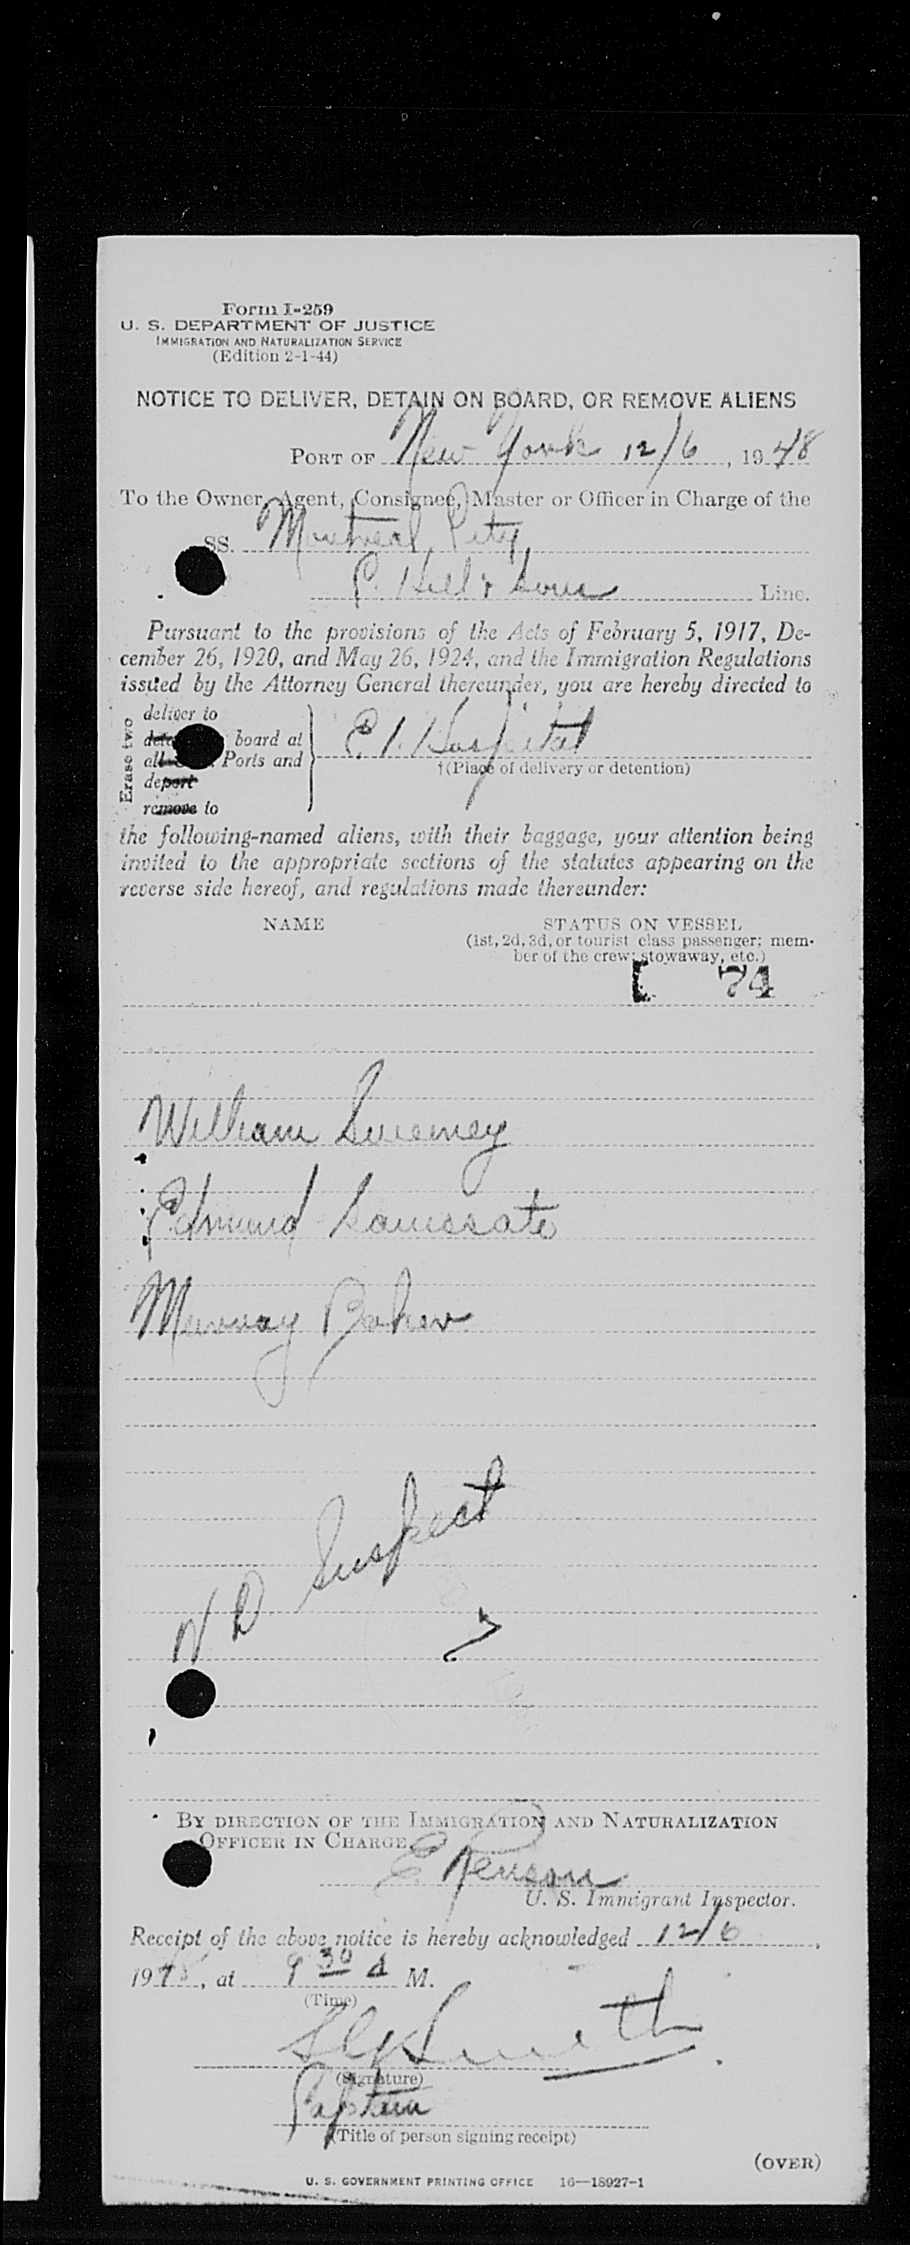 Form I-259
U. S. DEPARTMENT OF JUSTICE
IMMIGRATION AND NATURALIZATION SERVICE
(Edition 2-1-44)
NOTICE TO DELIVER, DETAIN ON BOARD, OR REMOVE ALIENS
PORT OF New York 12/6, 1948
To the Owner, Agent, Consignee, Master or Officer in Charge of the
SS. Montreal City
C. Hill & Sons Line.
Pursuant to the provisions of the Acts of February 5, 1917, De-
cember 26, 1920, and May 26, 1924, and the Immigration Regulations
issued by the Attorney General thereunder, you are hereby directed to
Erase two
deliver to
board at
all Ports and
depart
remove to
E. I. Hospital
†(Place of delivery or detention)
the following-named aliens, with their baggage, your attention being
invited to the appropriate sections of the statutes appearing on the
reverse side hereof, and regulations made thereunder:
NAME STATUS ON VESSEL
(1st, 2d, 3d, or tourist class passenger; mem-
ber of the crew; stowaway, etc.)
74
William Sweeney
Edmund
Murray Baker
V D Suspect
BY DIRECTION OF THE IMMIGRATION AND NATURALIZATION
OFFICER IN CHARGE
E.
U. S. Immigrant Inspector.
Receipt of the above notice is hereby acknowledged 12/6,
1948, at 9 30 A M.
(Time)
Smith
(Signature)
Captain
(Title of person signing receipt)
(OVER)
U. S. GOVERNMENT PRINTING OFFICE 16—18927-1